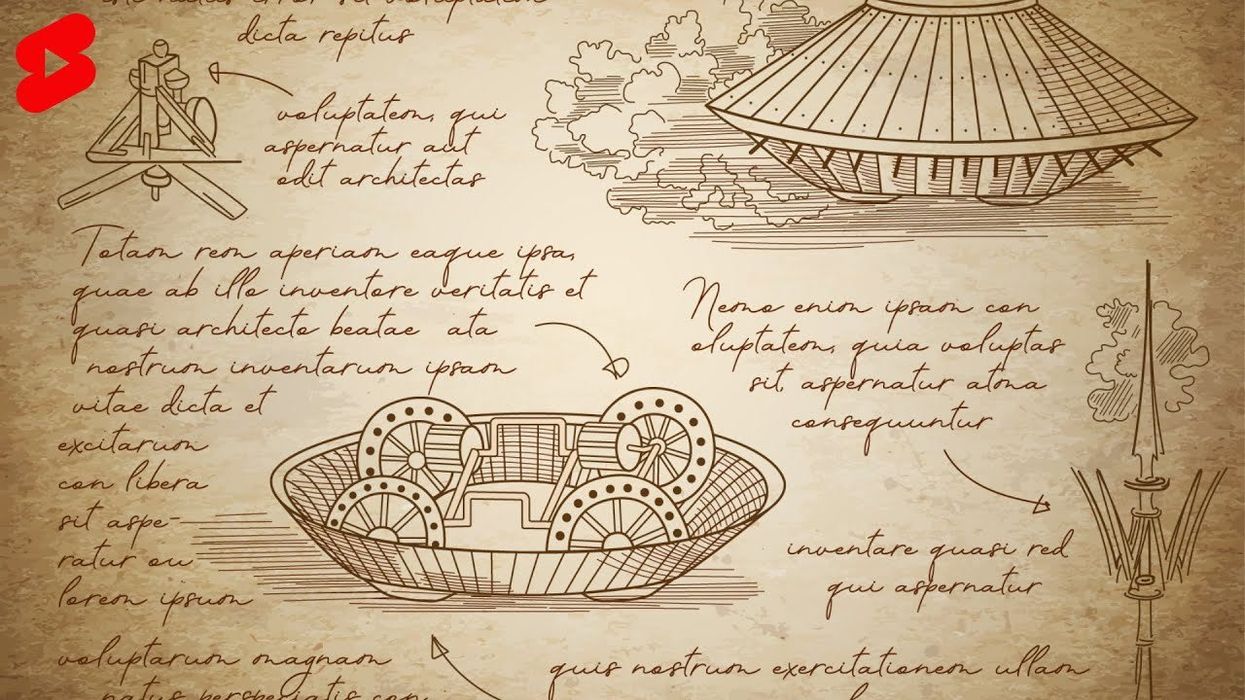 iste natus error sit voluptatem
dicta repitus
voluptatem, qui
aspernatur aut
odit architectas
Totam rem aperiam eaque ipsa,
quae ab illo inventore veritatis et
quasi architecto beatae ata
nostrum inventarum ipsam
vitae dicta et
excitarum
con libera
sit aspe-
ratur ou
lorem ipsum
Nemo enim ipsam con
oluptatem, quia voluptas
sit aspernatur atma
consequuntur
inventare quasi red
qui aspernatur
voluptarum magnam
natus perspeciatis con
quis nostrum exercitationem ullam